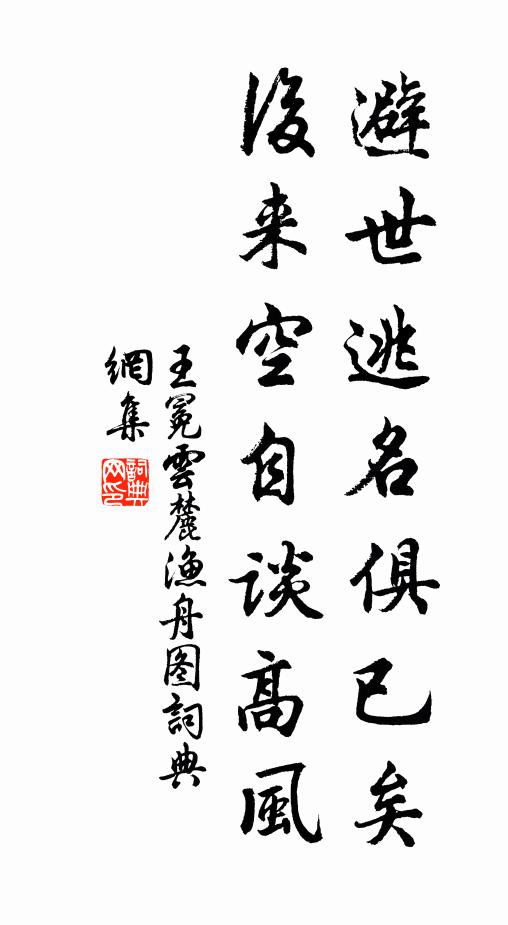 避世逃名俱已矣
後来空自談高風
王冕雲麓漁舟图詞典
網集
詞典網印